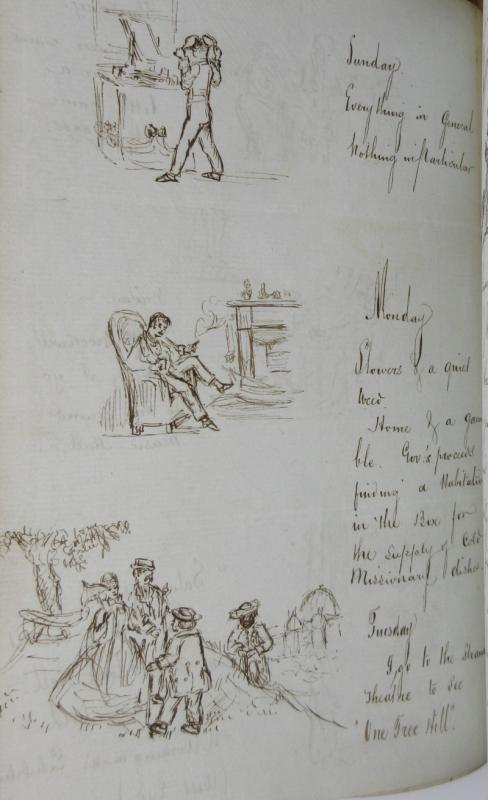 Sunday
Everything in General
Nothing in Particular
Monday
Flowers & a quiet
Weed.
Home & a gam
ble. Gov:s proceeds
finding a Habitatio
in the Box for
the supply of Cold
Missionary dishes
Tuesday
I go to the Stran
Theatre to see
"One Tree Hill".